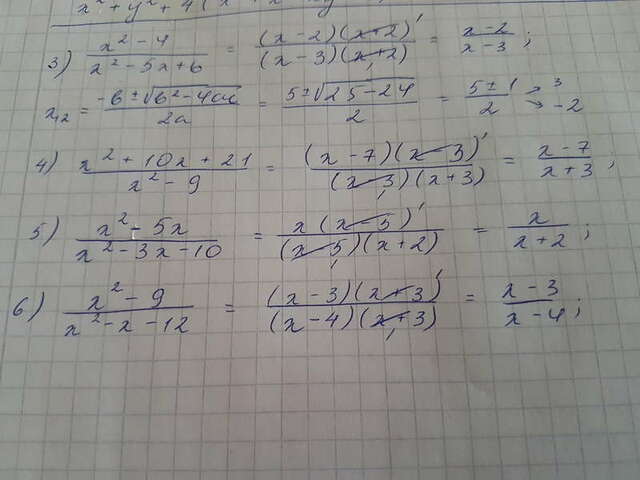 3) x² - 4 / x² - 5x + 6 = (x - 2)(x + 2) / (x - 3)(x + 2) = x - 2 / x - 3 ;
x₁,₂ = -b ± √b² - 4ac / 2a = 5 ± √25 - 24 / 2 = 5 ± 1 / 2 → 3 → -2
4) x² + 10x + 21 / x² - 9 = (x - 7)(x - 3) / (x - 3)(x + 3) = x - 7 / x + 3 ;
5) x² - 5x / x² - 3x - 10 = x (x - 5) / (x - 5)(x + 2) = x / x + 2 ;
6) x² - 9 / x² - x - 12 = (x - 3)(x + 3) / (x - 4)(x + 3) = x - 3 / x - 4 ;